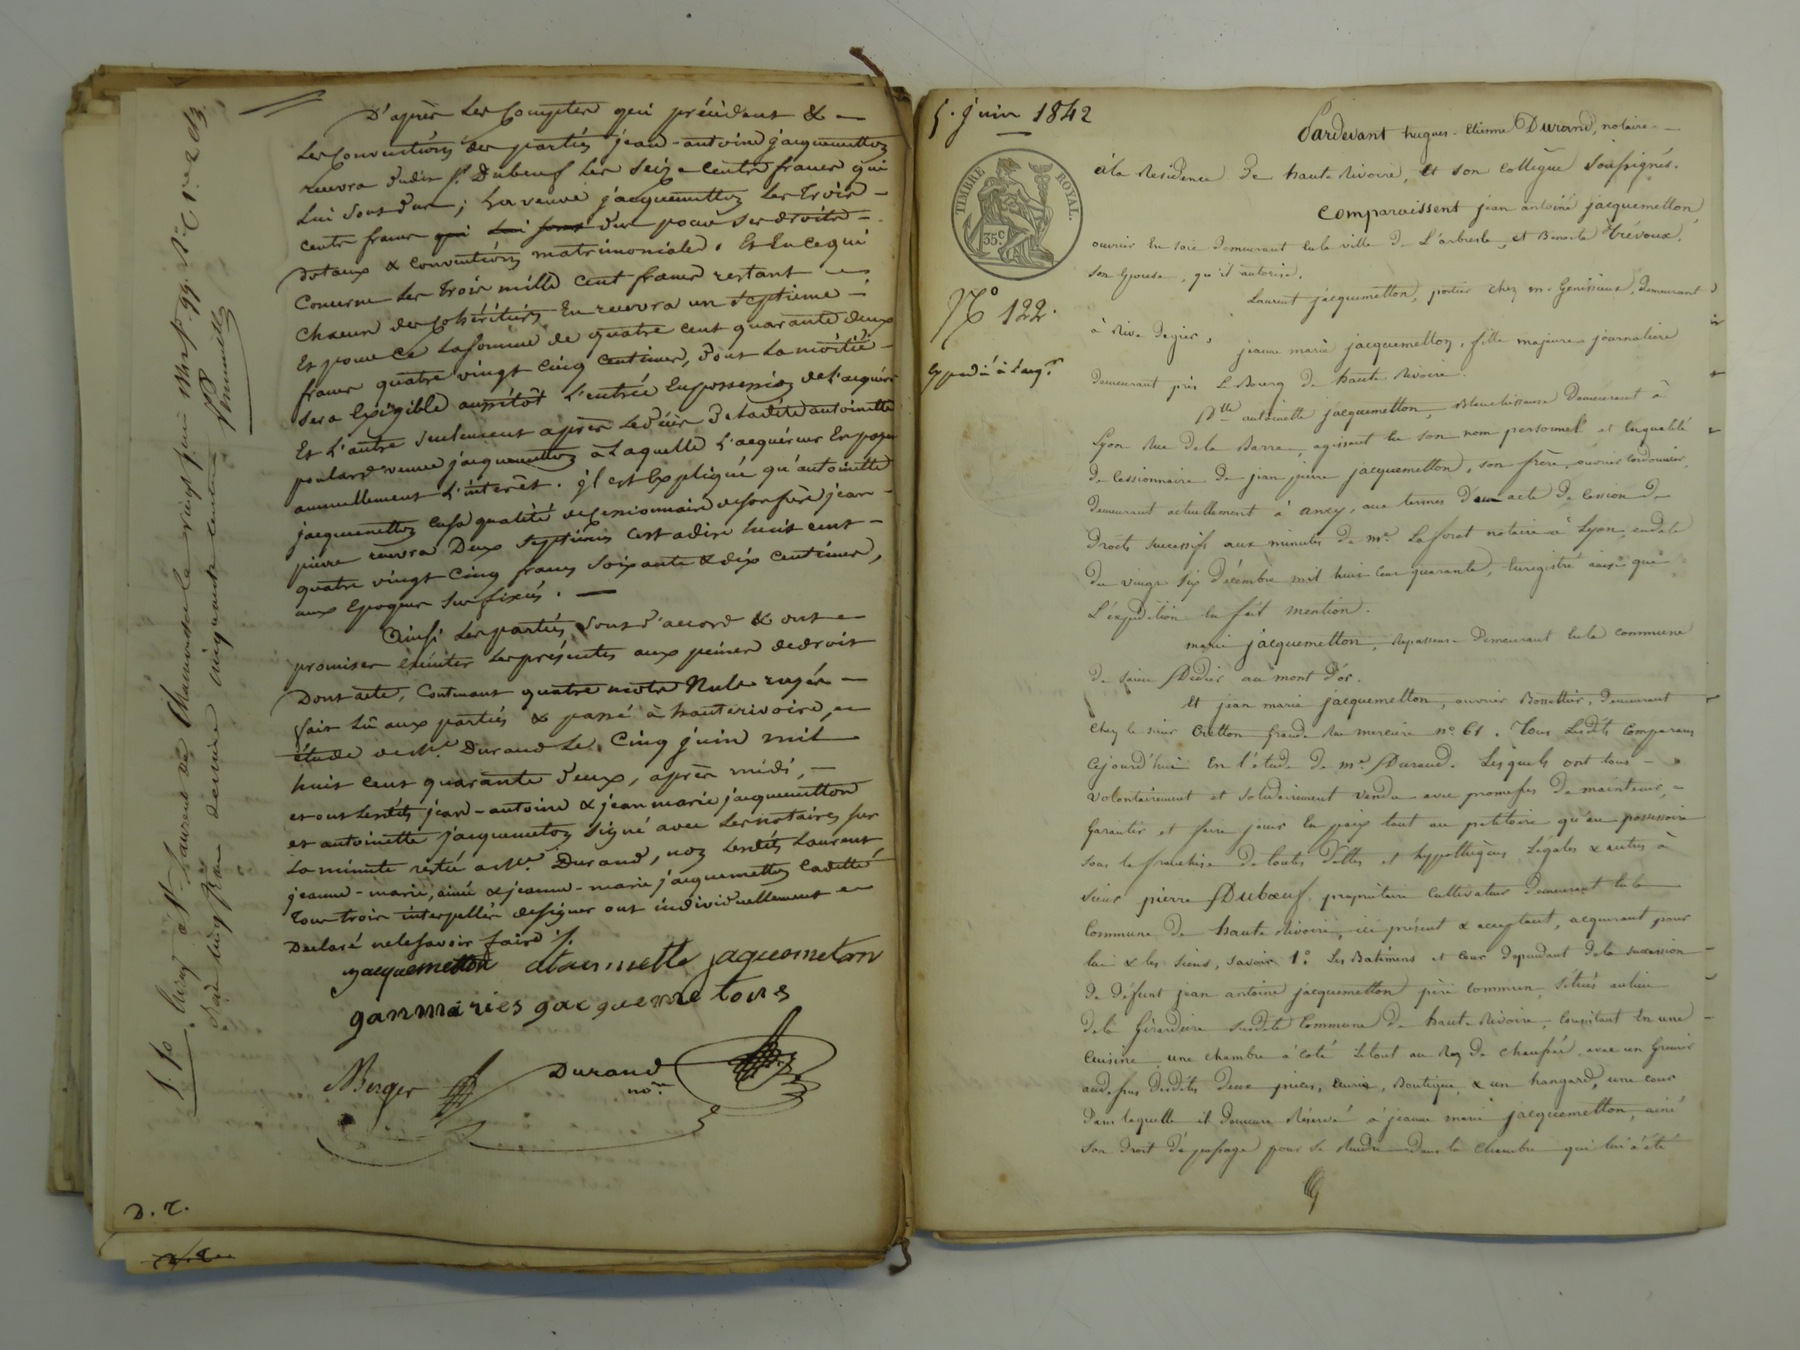 D'après les Comptes qui précèdent & —
Les Conventions des parties jean-antoine jacquemetton
recevra dudit Sr. Dubeuf les Seize cents francs qui
lui sont dus ; La veuve jacquemetton les trois —
cents francs qui lui sont dus pour ses droits —
dotaux & conventions matrimoniales. Et En ce qui
Concerne les trois mille cent francs restant —
chacun des Cohéritiers En recevra un Septieme —
Et pour ce la somme de quatre cent quarante deux
francs quatre vingt cinq centimes, dont la moitié —
sera Exigible aussitôt l'entrée En possession de l'acquéreur
Et l'autre seulement après le décès de ladite antoinette
poulard veuve jacquemetton à laquelle l'acquéreur En payera
annuellement l'intérêt. il est Expliqué qu'antoinette
jacquemetton En sa qualité de cessionnaire de son frère jean-
pierre recevra Deux Septièmes c'est à dire huit cent —
quatre vingt cinq francs Soixante & dix centimes,
aux Epoques sus fixées. —
Ainsi les parties sont d'accord & ont —
promis exécuter les présentes aux peines de droit
Dont acte, Contenant quatre mots Nuls rayés —
fait lû aux parties & passé à hauterivoire, —
étude de Me. Durand Le Cinq juin mil
huit cent quarante deux, après midi, —
et ont lesdits jean-antoine & jean marie jacquemetton
et antoinette jacquemeton signé avec les notaires sur
La minute restée à Me. Durand, non lesdits Laurent,
jeanne-marie, ainée & jeanne-marie jacquemetton cadette
tous trois interpellés de signer ont individuellement —
Déclaré ne le savoir faire ./.
jacquemetton antoinette jaquemeton
ganmaries gacquemetons
Berger Durand
nore.
D. r.
5. juin 1842
TIMBRE ROYAL.
35c
No 122.
Expédié à l'acqr.
Pardevant hugues-Etienne Durand, notaire —
à la Résidence de haute Rivoire, Et son collègue Soussignés.
Comparaissent jean antoine jacquemetton,
ouvrier En soie demeurant En la ville de L'arbresle, et Benoite Trévoux,
son Epouse, qu'il autorise.
Laurent jacquemetton, portier chez mr. Genissieux, demeurant
à Rive de gier,
jeanne marie jacquemetton, fille majeure journalière
demeurant près Le Bourg de haute Rivoire.
Dlle antoinette jacquemetton, Blanchisseuse Demeurant à
Lyon Rue de la Barre, agissant En son nom personnel et En qualité
de Cessionnaire de jean pierre jacquemetton, son frère, ouvrier Cordonnier,
demeurant actuellement à ancy, aux termes d'un acte de Cession de
Droits Successifs aux minutes de me. Laforest notaire à Lyon, en date
du vingt six Décembre mil huit cent quarante, Enregistré ainsi que
L'expédition En fait mention.
marie jacquemetton, repasseuse Demeurant En la commune
de saint Didier au mont d'or.
Et jean marie jacquemetton, ouvrier Bossettier, demeurant
chez le sieur Cretton grande Rue merciere no. 61. Tous Lesdits Comparans
Cejourd'hui En l'étude de me. Durand. Lesquels ont tous —
volontairement et solidairement vendu avec promesses De maintenir, —
Garantir et faire jouir En paix tant au petitoire qu'au possessoire
sous la franchise de toutes Dettes et hypothèques Légales & autres à
sieur pierre Dubœuf, propriétaire Cultivateur demeurant En la
Commune de haute Rivoire, ici présent & acceptant, acquérant, pour
lui & les siens, Savoir 1o. Les Bâtimens et Cour Dépendant de la succession
de défunt jean antoine jacquemetton père commun, situés au lieu
de la Girardière susdite Commune de haute Rivoire, Consistant En une
Cuisine, une chambre à coté Le tout au Rez de chaussée, avec un Grenier
au dessus desdites deux pièces, Ecurie, Boutique, & un hangard, une cour
Dans laquelle il Demeure Réservé à jeanne marie jacquemetton, ainé
son Droit De passage pour se Rendre Dans la Chambre qui lui a été